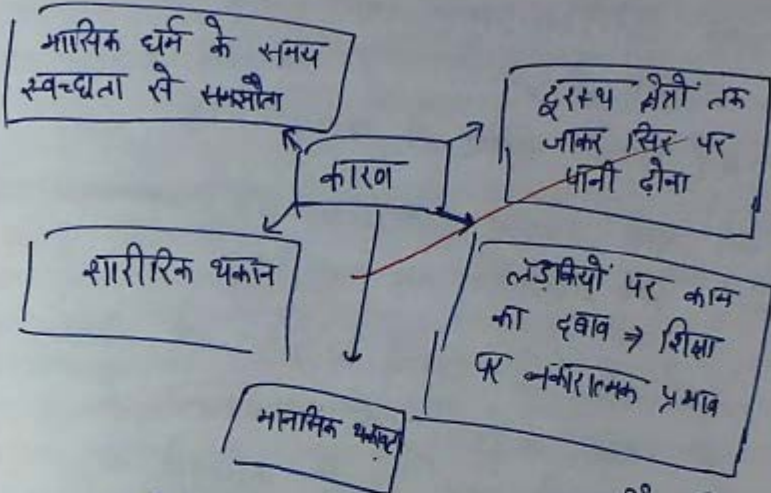 मासिक धर्म के समय
स्वच्छता से समझौता
दूरस्थ क्षेत्रों तक
जाकर सिर पर
पानी ढोना
कारण
शारीरिक थकान
लड़कियों पर काम
का दबाव ⇒ शिक्षा
पर नकारात्मक प्रभाव
मानसिक थकावट